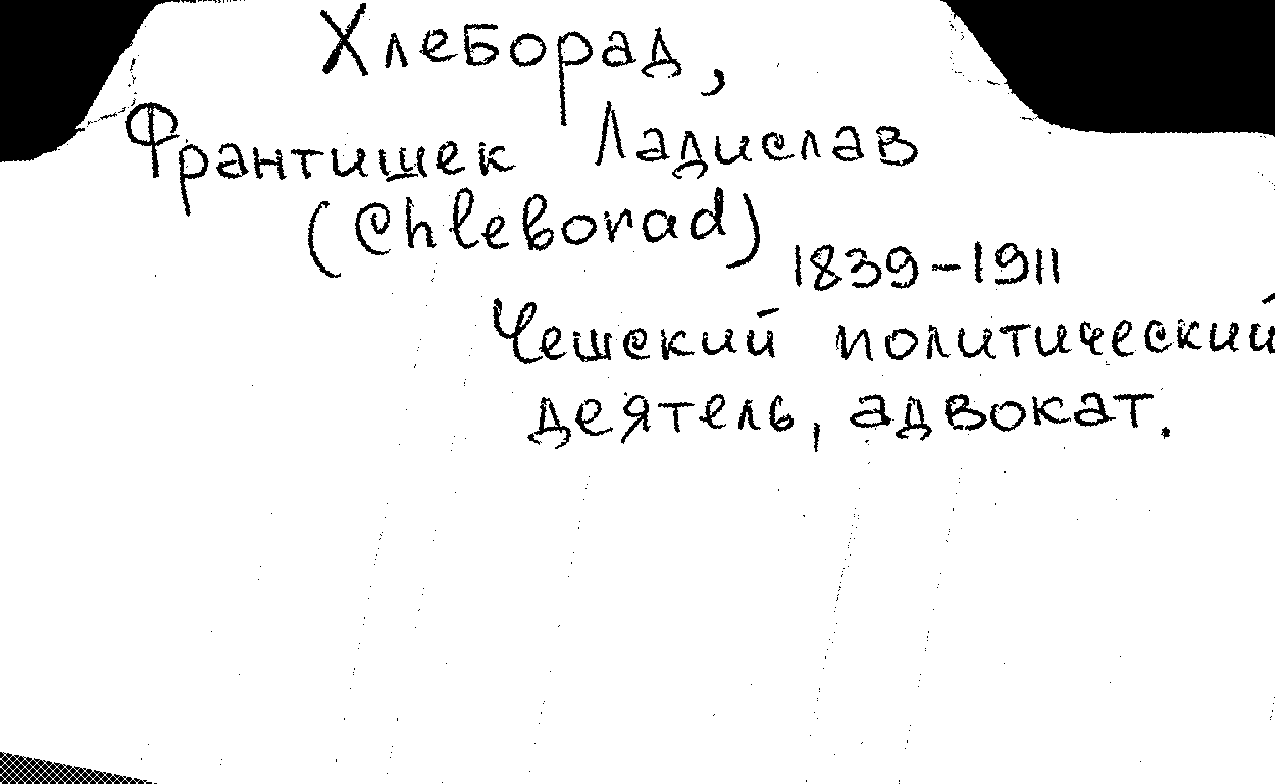 Хлеборад,
Франтишек Ладислав
(Chleborad)
1839-1911
Чешский политический
деятель, адвокат.